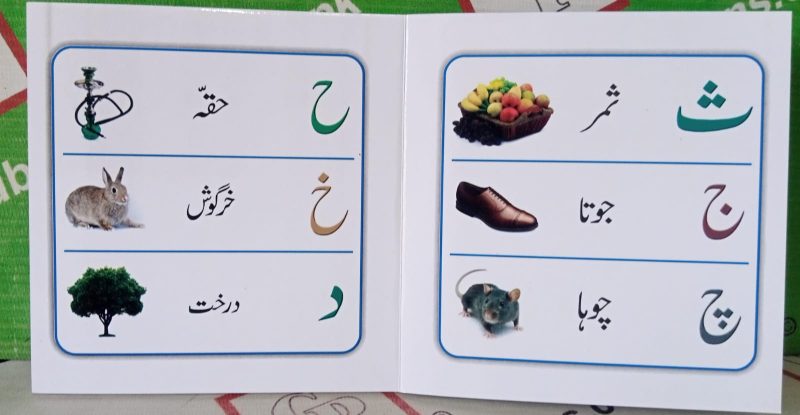 ث ثمر
ج جوتا
چ چوہا
ح حقّہ
خ خرگوش
د درخت